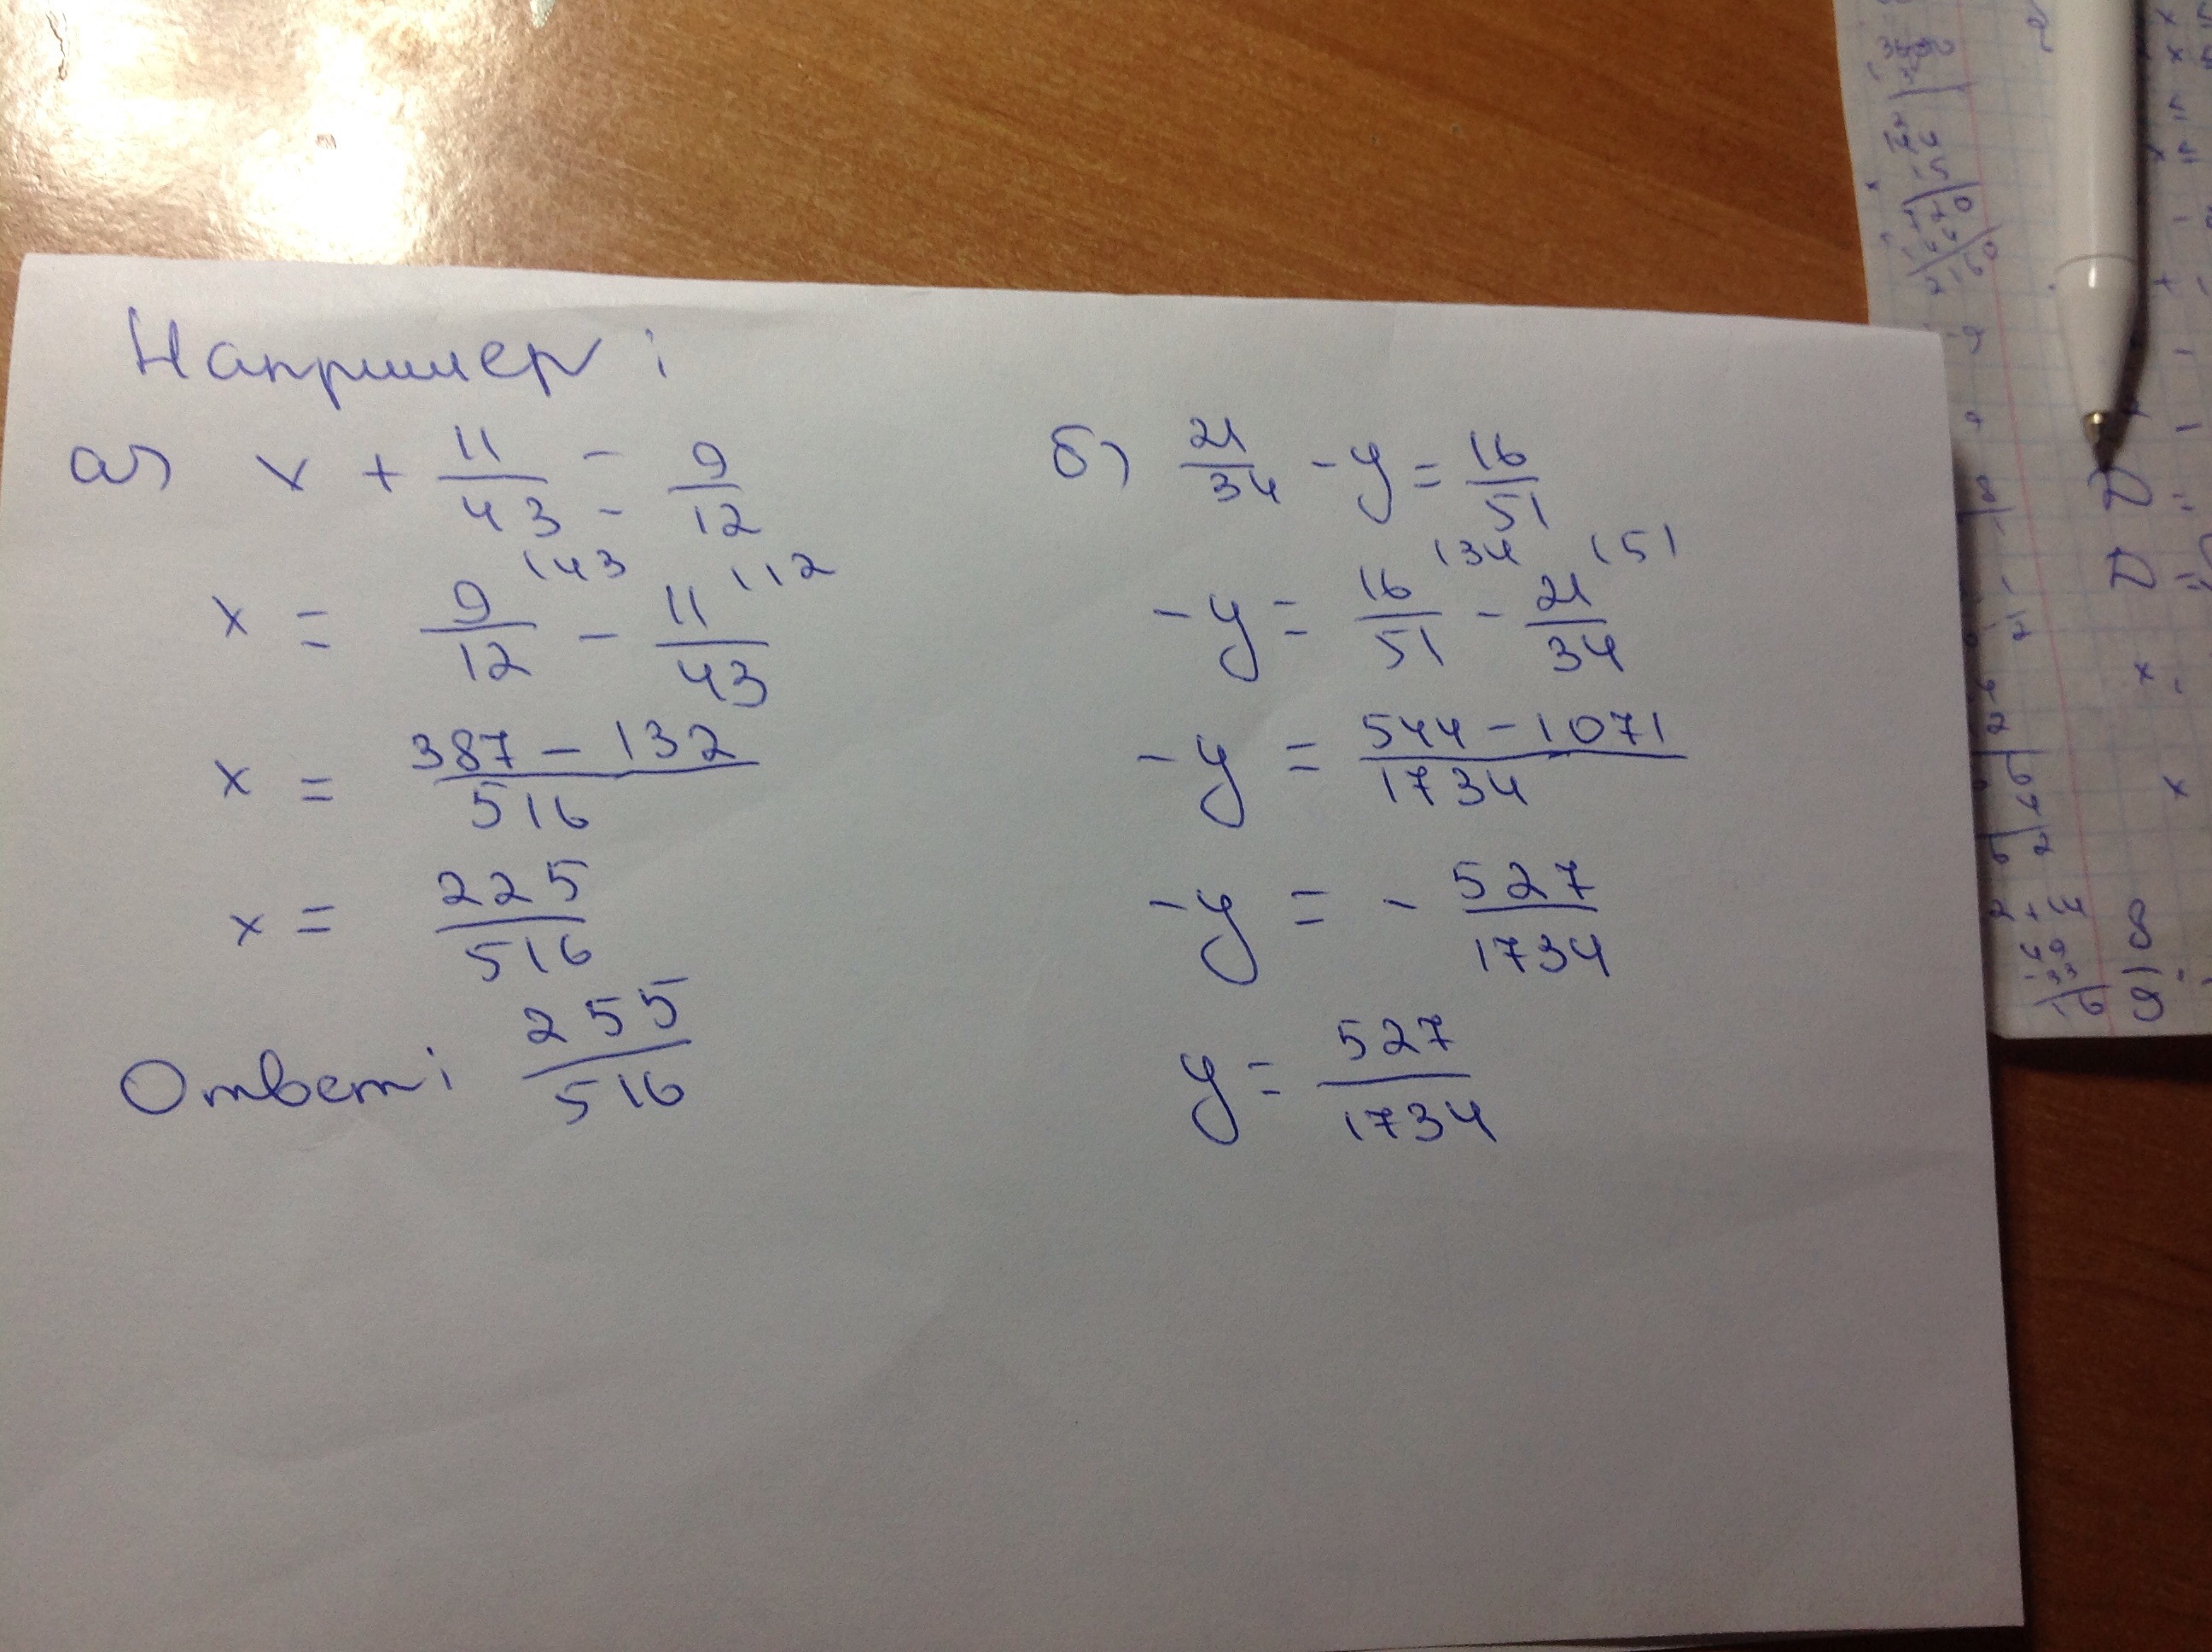 Например:
а) x + 11/43 = 9/12
x = 9/12 (43 - 11/43 (12
x = 387 - 132/516
x = 225/516
Ответ: 255/516
б) 21/34 - y = 16/51
-y = 16/51 (34 - 21/34 (51
-y = 544 - 1071/1734
-y = - 527/1734
y = 527/1734